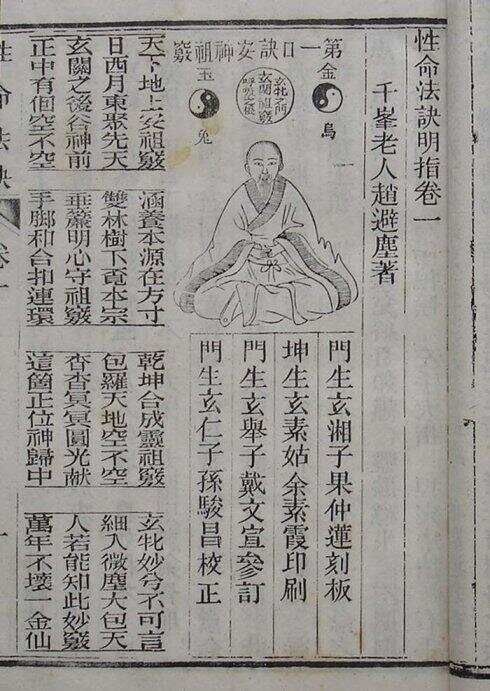 性命法訣明指卷一
千峯老人趙避塵著
第一口訣安神祖竅
金烏
玄關祖竅
玉兔
門生玄湘子果仲蓮刻板
坤生玄素姑余素霞印刷
門生玄舉子戴文宣參訂
門生玄仁子孫駿昌校正
天下地上安祖竅
日西月東聚先天
玄關之後谷神前
正中有個空不空
涵養本源在方寸
雙林樹下覓本宗
垂簾明心守祖竅
手脚和合扣連環
乾坤合成靈祖竅
包羅天地空不空
杳杳冥冥圓光獻
這箇正位神歸中
玄牝妙兮不可言
細入微塵大包天
人若能知此妙竅
萬年不壞一金仙
性命法訣
卷一
一